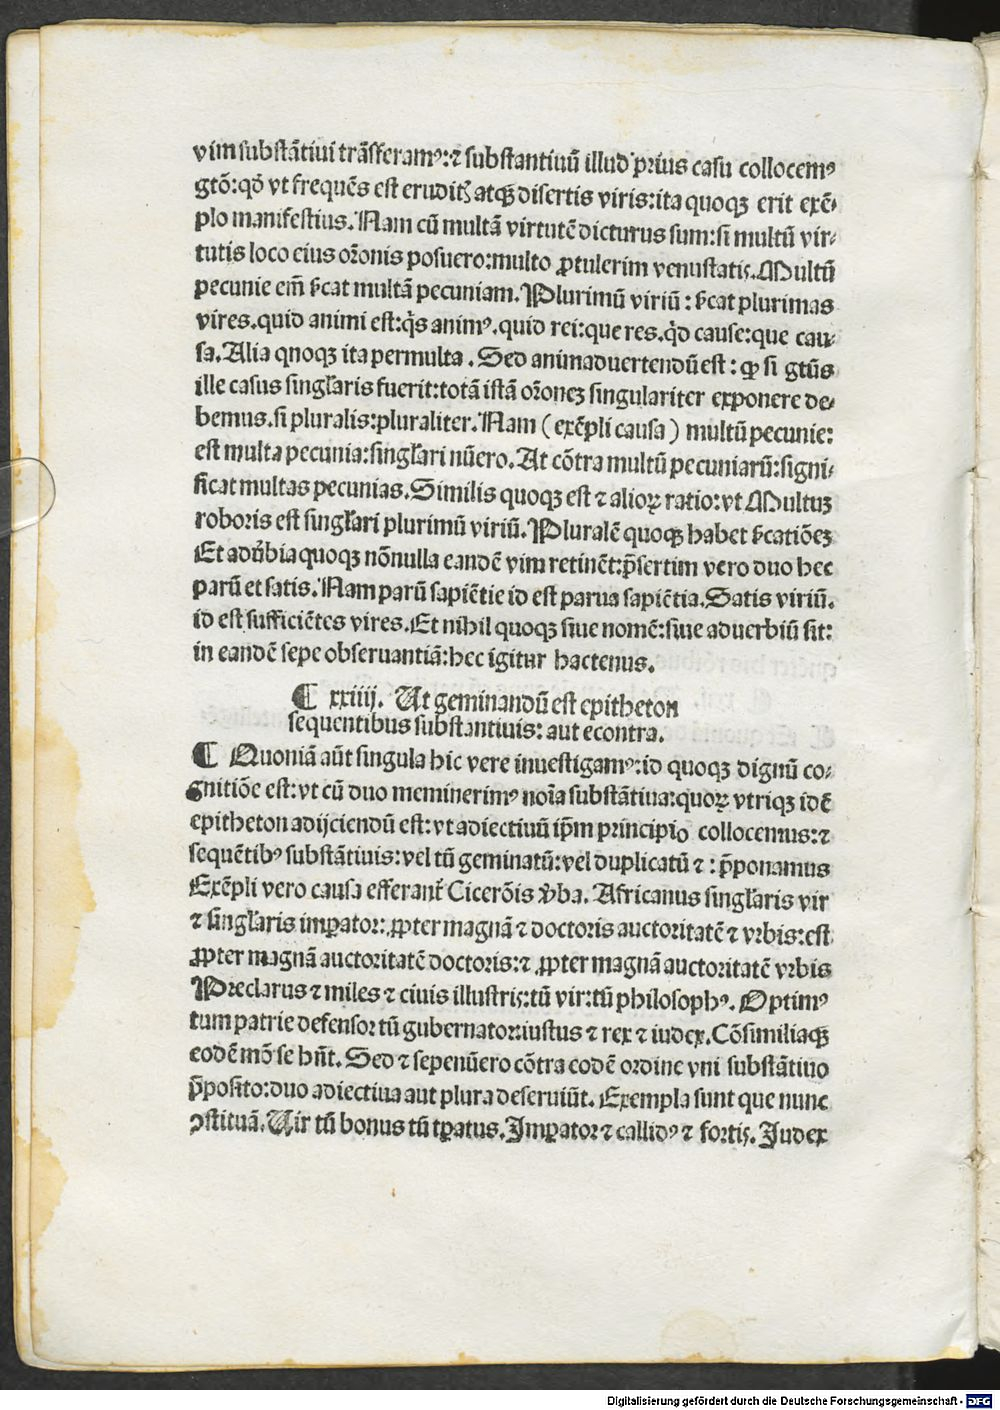 vim substãtiui trãsferamꝰ:⁊ substantiuũ illud prius casu collocemꝰ
gtõ:qđ vt frequẽs est eruditꝭ atqꝫ disertis viris:ita quoqꝫ erit exẽ-
plo manifestius. Nam cũ multã virtutẽ dicturus sum:si multũ vir-
tutis loco eius or̃onis posuero:multo ꝓtulerim venustatiꝰ. Multũ
pecunie em̃ sc̃cat multã pecuniam. Plurimũ viriũ : sc̃cat plurimas
vires. quid animi est:qͥs animꝰ. quid rei:que res. qͥd cause:que cau-
sa. Alia qnoqꝫ ita permulta . Sed animaduertendũ est : ꝙ si gtũs
ille casus singl̃aris fuerit:totã istã or̃oneꝫ singulariter exponere de-
bemus. si pluralis:pluraliter. Nam ( exẽpli causa ) multũ pecunie:
est multa pecunia:singl̃ari nũero. At cõtra multũ pecuniarũ:signi-
ficat multas pecunias. Similis quoqꝫ est ⁊ alioꝝ ratio:vt Multuꝫ
roboris est singl̃ari plurimũ viriũ. Pluralẽ quoqꝫ habet sc̃catiõeꝫ
Et adũbia quoqꝫ nõnulla eandẽ vim retinẽt:p̃sertim vero duo hec
parũ et satis. Nam parũ sapiẽtie id est parua sapiẽtia. Satis viriũ.
id est sufficiẽtes vires. Et nihil quoqꝫ siue nomẽ:siue aduerbiũ sit:
in eandẽ sepe obseruantiã:hec igitur hactenus.
¶ xxiiij. Ut geminandũ est epitheton
sequentibus substantiuis: aut econtra.
¶ Quoniã aũt singula hic vere inuestigamꝰ:id quoqꝫ dignũ co-
gnitiõe est:vt cũ duo meminerimꝰ noĩa substãtiua:quoꝝ vtriqꝫ idẽ
epitheton adijciendũ est:vt adiectiuũ ip̃m principio collocemus:⁊
sequẽtibꝰ substãtiuis:vel tũ geminatũ:vel duplicatũ ⁊ : p̃ponamus
Exẽpli vero causa efferant᷑ Cicerõis ṽba. Africanus singl̃aris vir
⁊ singl̃aris imꝑator: ꝓpter magnã ⁊ doctoris auctoritatẽ ⁊ vrbis:est
ꝓpter magnã auctoritatẽ doctoris:⁊ ꝓpter magnã auctoritatẽ vrbis
Preclarus ⁊ miles ⁊ ciuis illustris:tũ vir:tũ philosophꝰ. Optimꝰ
tum patrie defensor tũ gubernator:iustus ⁊ rex ⁊ iudex. Cõsimiliaqꝫ
eodẽ mõ se hñt. Sed ⁊ sepenũero cõtra eodẽ ordine vni substãtiuo
p̃posito:duo adiectiua aut plura deseruiũt. Exempla sunt que nunc
ꝯstituã. Uir tũ bonus tũ ꝑatus. Imꝑator ⁊ callidꝰ ⁊ fortis. Judex
Digitalisierung gefördert durch die Deutsche Forschungsgemeinschaft - DFG